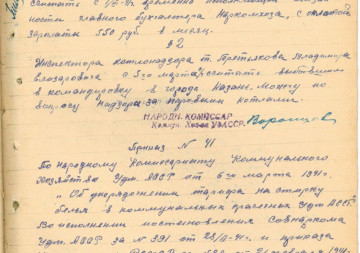 считать с 1/IV-41 временно исполняющим обязан
ности главного бухгалтера Наркомхоза, с оплатой
зарплаты 550 руб. в месяц.
§2
Инспектора котлонадзора т. Третьякова Владимира
с 5го марта считать выбывшим
в командировку в города Казань. Можгу по
вопросу надзора за паровыми котлами.
НАРОДН. КОМИССАР
Коммун. Хоз-ва УАССР. Воронцов
Приказ № 41
По народному Комиссариату Коммунального
Хозяйства Удм. АССР от 6го марта 1941г.
„Об упорядочении тарифа на стирку
белья в коммунальных прачечных Удм АССР"
Во исполнении постановления Совнаркома
Удм. АССР за № 391 от 28/II-41г. и приказа